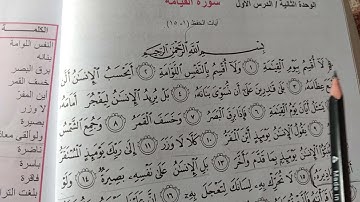 الوحدة الثانية / الدرس الأول
سورة القيامة
آيات الحفظ (١-١٥)
بِسْمِ اللَّهِ الرَّحْمَٰنِ الرَّحِيمِ
لَا أُقْسِمُ بِيَوْمِ الْقِيَامَةِ ١ وَلَا أُقْسِمُ بِالنَّفْسِ اللَّوَّامَةِ ٢ أَيَحْسَبُ الْإِنسَانُ أَلَّن
عِظَامَهُ ٣ بَلَىٰ قَادِرِينَ عَلَىٰ أَن نُّسَوِّيَ بَنَانَهُ ٤ بَلْ يُرِيدُ الْإِنسَانُ لِيَفْجُرَ أَمَامَهُ
يَوْمُ الْقِيَامَةِ ٦ فَإِذَا بَرِقَ الْبَصَرُ ٧ وَخَسَفَ الْقَمَرُ ٨ وَجُمِعَ الشَّمْسُ
يَقُولُ الْإِنسَانُ يَوْمَئِذٍ أَيْنَ الْمَفَرُّ ١٠ كَلَّا لَا وَزَرَ ١١ إِلَىٰ رَبِّكَ يَوْمَئِذٍ الْمُسْتَقَرُّ
الْإِنسَانُ يَوْمَئِذٍ بِمَا قَدَّمَ وَأَخَّرَ ١٣ بَلِ الْإِنسَانُ عَلَىٰ نَفْسِهِ بَصِيرَةٌ ١٤ وَلَوْ
مَعَاذِيرَهُ ١٥ لَا تُحَرِّكْ بِهِ لِسَانَكَ لِتَعْجَلَ بِهِ ١٦
الكلمة
النفس اللوامة
بنانه
برق البصر
خسف القمر
أين المفر
لا وزر
بصيرة
ولو ألقى معا
ناضرة
باسرة
فاقرة
بلغت الترا